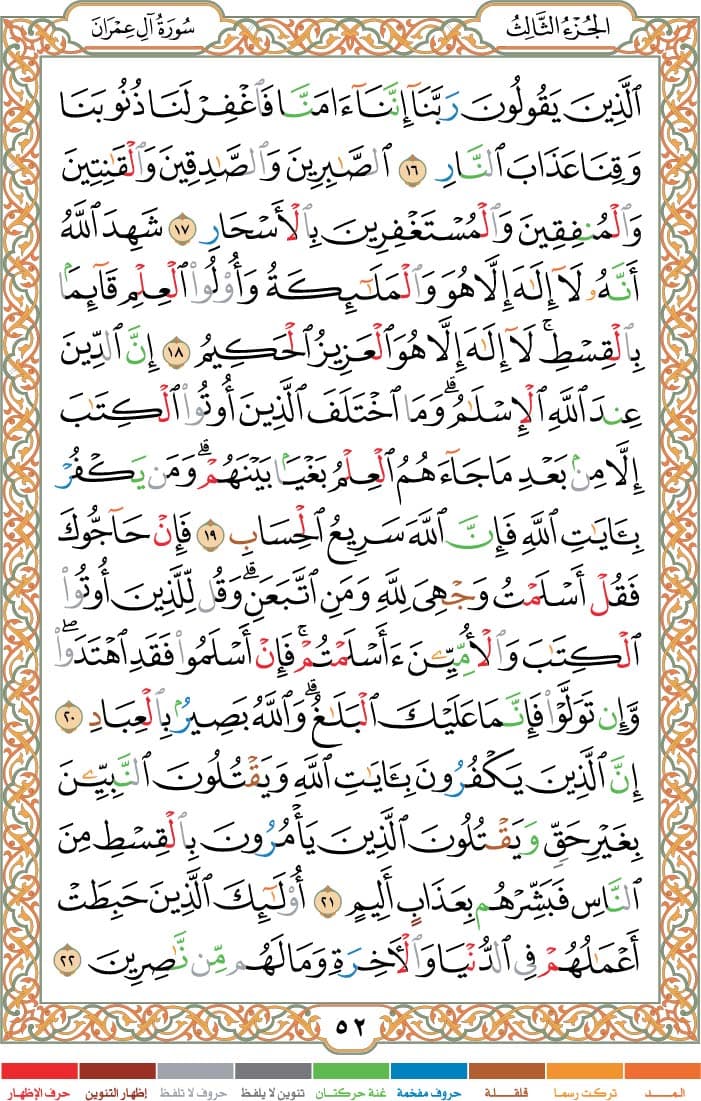 الجُزْءُ الثَّالِثُ سُورَةُ آلِ عِمْرَان
ٱلَّذِينَ يَقُولُونَ رَبَّنَآ إِنَّنَآ ءَامَنَّا فَٱغْفِرْ لَنَا ذُنُوبَنَا
وَقِنَا عَذَابَ ٱلنَّارِ ١٦ ٱلصَّٰبِرِينَ وَٱلصَّٰدِقِينَ وَٱلْقَٰنِتِينَ
وَٱلْمُنفِقِينَ وَٱلْمُسْتَغْفِرِينَ بِٱلْأَسْحَارِ ١٧ شَهِدَ ٱللَّهُ
أَنَّهُۥ لَآ إِلَٰهَ إِلَّا هُوَ وَٱلْمَلَٰٓئِكَةُ وَأُو۟لُوا۟ ٱلْعِلْمِ قَآئِمَۢا
بِٱلْقِسْطِ ۚ لَآ إِلَٰهَ إِلَّا هُوَ ٱلْعَزِيزُ ٱلْحَكِيمُ ١٨ إِنَّ ٱلدِّينَ
عِندَ ٱللَّهِ ٱلْإِسْلَٰمُ ۗ وَمَا ٱخْتَلَفَ ٱلَّذِينَ أُوتُوا۟ ٱلْكِتَٰبَ
إِلَّا مِنۢ بَعْدِ مَا جَآءَهُمُ ٱلْعِلْمُ بَغْيَۢا بَيْنَهُمْ ۗ وَمَن يَكْفُرْ
بِـَٔايَٰتِ ٱللَّهِ فَإِنَّ ٱللَّهَ سَرِيعُ ٱلْحِسَابِ ١٩ فَإِنْ حَآجُّوكَ
فَقُلْ أَسْلَمْتُ وَجْهِىَ لِلَّهِ وَمَنِ ٱتَّبَعَنِ ۗ وَقُل لِّلَّذِينَ أُوتُوا۟
ٱلْكِتَٰبَ وَٱلْأُمِّيِّـۧنَ ءَأَسْلَمْتُمْ ۚ فَإِنْ أَسْلَمُوا۟ فَقَدِ ٱهْتَدَوا۟ ۖ
وَّإِن تَوَلَّوْا۟ فَإِنَّمَا عَلَيْكَ ٱلْبَلَٰغُ ۗ وَٱللَّهُ بَصِيرٌۢ بِٱلْعِبَادِ ٢٠
إِنَّ ٱلَّذِينَ يَكْفُرُونَ بِـَٔايَٰتِ ٱللَّهِ وَيَقْتُلُونَ ٱلنَّبِيِّـۧنَ
بِغَيْرِ حَقٍّ وَيَقْتُلُونَ ٱلَّذِينَ يَأْمُرُونَ بِٱلْقِسْطِ مِنَ
ٱلنَّاسِ فَبَشِّرْهُم بِعَذَابٍ أَلِيمٍ ٢١ أُو۟لَٰٓئِكَ ٱلَّذِينَ حَبِطَتْ
أَعْمَٰلُهُمْ فِى ٱلدُّنْيَا وَٱلْءَاخِرَةِ وَمَا لَهُم مِّن نَّٰصِرِينَ ٢٢
٥٢
المـــد تركت رسما قلقـلة حروف مفخمة غنة حركتان تنوين لا يلفظ حروف لا تلفظ إظهار التنوين حرف الإظهار